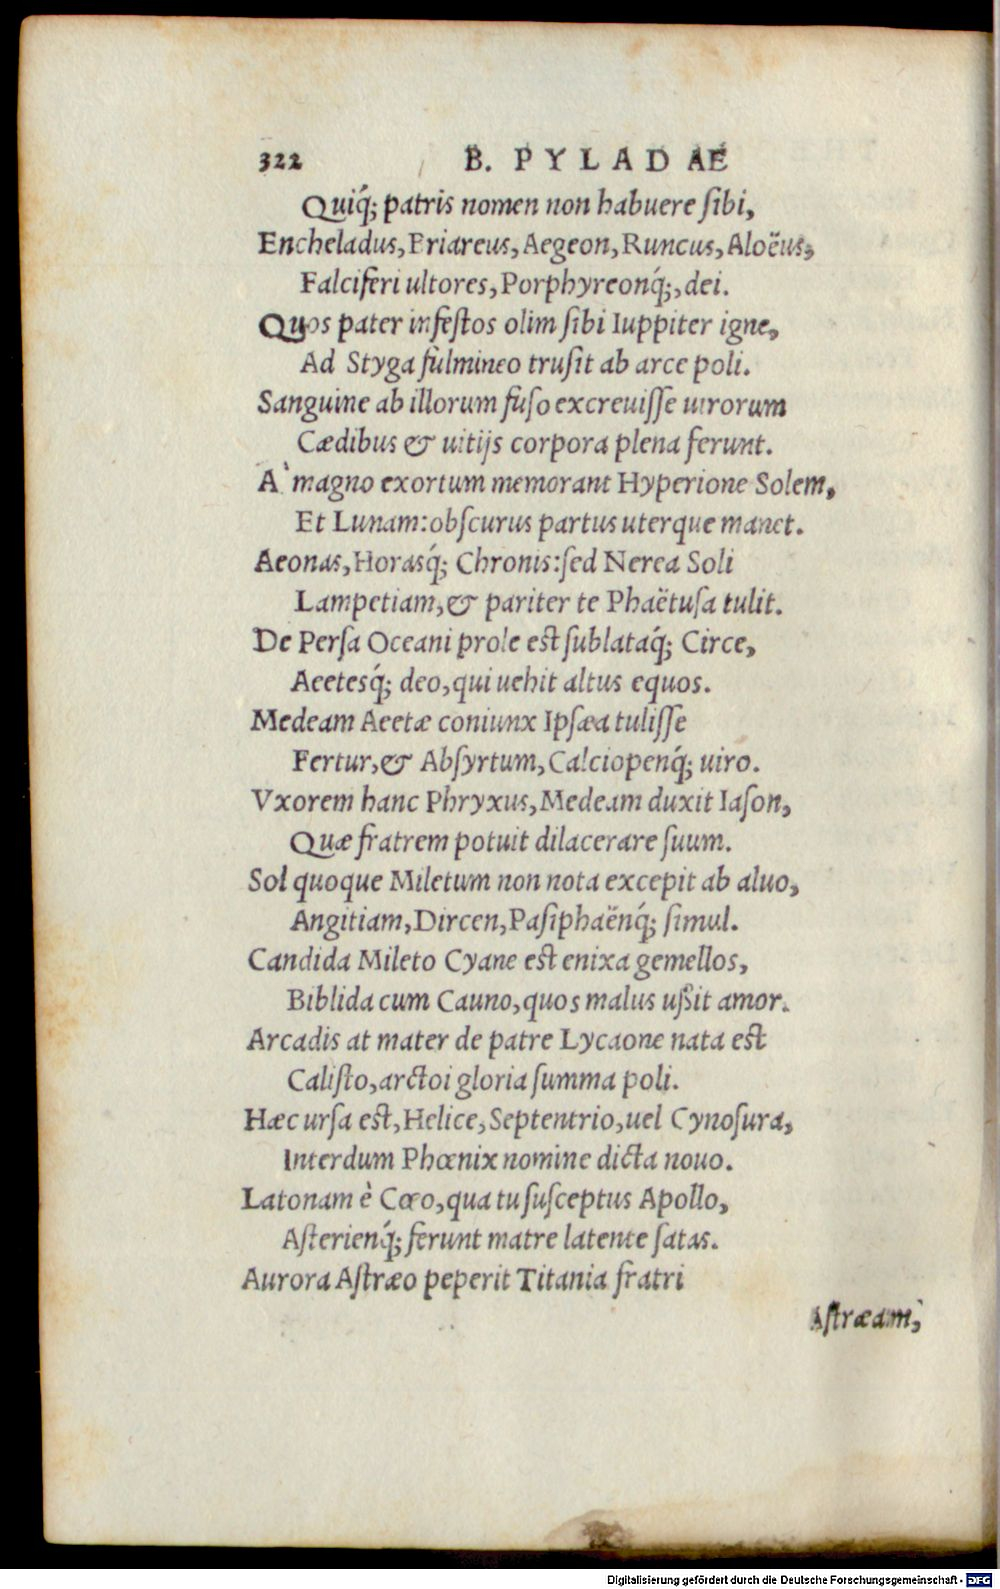 322 B. PYLADAE
Quiq́; patris nomen non habuere ſibi,
Encheladus, Briareus, Aegeon, Runcus, Aloëus,
Falciferi ultores, Porphyreonq́;, dei.
Quos pater infeſtos olim ſibi Iuppiter igne,
Ad Styga fulmineo truſit ab arce poli.
Sanguine ab illorum fuſo excreuiſſe uirorum
Cædibus & uitijs corpora plena ferunt.
A` magno exortum memorant Hyperione Solem,
Et Lunam: obſcurus partus uterque manet.
Aeonas, Horasq́; Chronis: ſed Nerea Soli
Lampetiam, & pariter te Phaëtuſa tulit.
De Perſa Oceani prole eſt ſublataq́; Circe,
Aeetesq́; deo, qui uehit altus equos.
Medeam Aeetæ coniunx Ipſæa tuliſſe
Fertur, & Abſyrtum, Calciopenq́; uiro.
Vxorem hanc Phryxus, Medeam duxit Iaſon,
Quæ fratrem potuit dilacerare ſuum.
Sol quoque Miletum non nota excepit ab aluo,
Angitiam, Dircen, Paſiphaënq́; ſimul.
Candida Mileto Cyane eſt enixa gemellos,
Biblida cum Cauno, quos malus uſsit amor.
Arcadis at mater de patre Lycaone nata eſt
Caliſto, arctoi gloria ſumma poli.
Hæc urſa eſt, Helice, Septentrio, uel Cynoſura,
Interdum Phœnix nomine dicta nouo.
Latonam è Cœo, qua tu ſuſceptus Apollo,
Aſterienq́; ferunt matre latente ſatas.
Aurora Aſtræo peperit Titania fratri
Aſtræam,
Digitalisierung gefördert durch die Deutsche Forschungsgemeinschaft - DFG